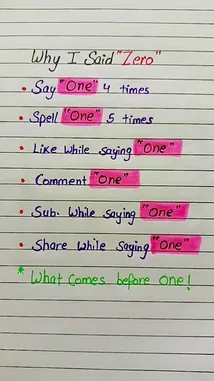 Why I Said "Zero"
• Say "One" 4 times
• Spell "One" 5 times
• Like while saying "One"
• Comment "One"
• Sub. while saying "One"
• Share while Saying "One"
* What comes before one!